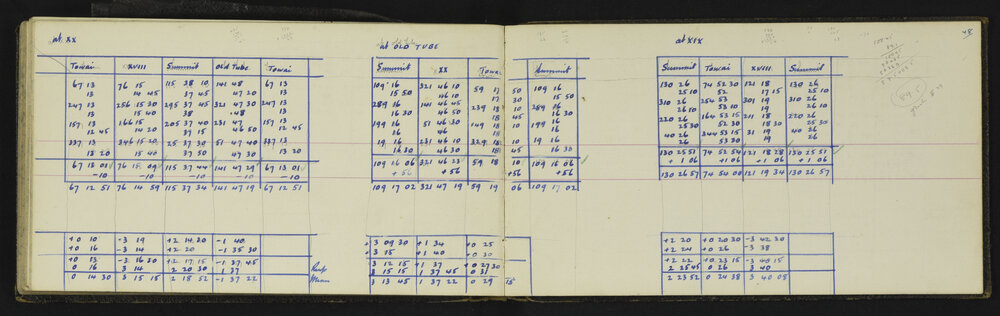 at XX
Towai XVIII Summit Old Tube Towai
67 13 76 15 115 38 10 141 48 67 13
13 14 45 37 45 47 20 13
247 13 256 15 30 295 37 45 321 47 30 247 13
13 15 40 38 48 13
157 13 166 15 205 37 40 231 47 157 13
12 45 14 20 37 15 46 50 12 45
337 13 346 15 20 25 37 30 51 47 40 337 13
13 20 15 40 37 50 47 30 13 20
67 13 01 76 15 09 115 37 44 141 47 29 67 13 01
-10 -10 -10 -10 -10
67 12 51 76 14 59 115 37 34 141 47 19 67 12 51
+0 10 -3 19 +2 14 20 -1 40
+0 16 -3 14 +2 20 -1 35 30
+0 13 -3 16 30 +2 17 15 -1 37 45
0 16 3 14 2 20 30 1 37
0 14 30 3 15 15 2 18 52 -1 37 22 Mean
at OLD TUBE
Summit XX Towai Summit
109 16 321 46 10 59 17 50 109 16
15 50 46 10 17 30 15 50
289 16 141 46 45 239 18 10 289 16
16 30 46 50 18 45 16 30
199 16 51 46 30 149 18 10 199 16
16 46 18 16
19 16 231 46 10 329 18 10 19 16
16 30 46 30 18 45 16 30
109 16 06 321 46 23 59 18 10 109 16 06
+56 +56 +56 +56
109 17 02 321 47 19 59 19 06 109 17 02
+3 09 30 +1 34 +0 25
+3 15 +1 40 +0 30
+3 12 15 +1 37 +0 27 30
3 15 15 1 37 45 0 31
3 13 45 1 37 22 0 29 15
at XIX
48
Summit Towai XVIII Summit
130 26 74 52 30 121 18 130 26
25 10 52 17 25 10
310 26 254 53 301 19 310 26
26 53 10 19 26
220 26 164 53 15 211 18 220 26
25 30 52 30 18 30 25 30
40 26 344 53 15 31 19 40 26
26 53 30 19 26
130 25 51 74 52 54 121 18 28 130 25 51
+1 06 +1 06 +1 06 +1 06
130 26 57 74 54 00 121 19 34 130 26 57
+2 20 +0 20 30 -3 42 30
+2 24 +0 26 -3 38
+2 22 +0 23 15 -3 40 15
2 25 45 0 26 3 40
2 23 52 0 24 38 3 40 08